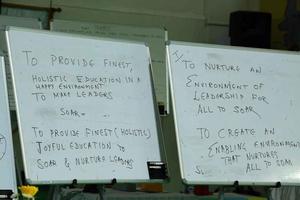 To PROVIDE FINEST,
HOLISTIC EDUCATION IN A
HAPPY ENVIRONMENT
To MAKE LEADERS
SOAR
To PROVIDE FINEST (HOLISTIC)
JOYFUL EDUCATION To
SOAR & NURTURE LEADERS
To NURTURE AN
ENVIRONMENT OF
LEADERSHIP FOR
ALL To SOAR
To CREATE AN
ENABLING ENVIRONMENT
THAT NURTURES
ALL To SOAR